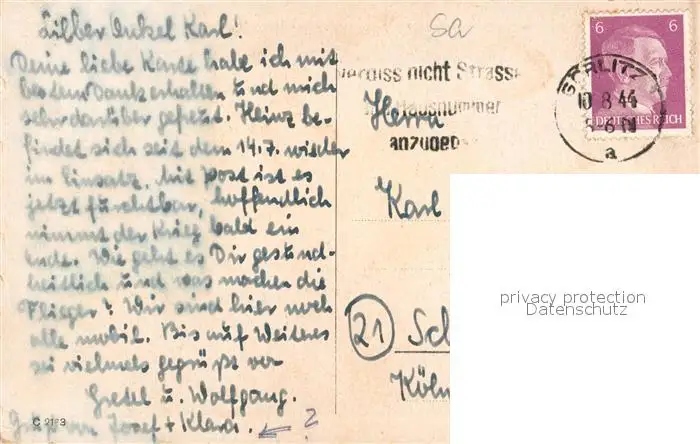 Lilber Onkel Karl!
Deine liebe Karte habe ich mit
bestem Dank erhalten und mich
sehr darüber gefreut. Heinz be-
findet sich seit dem 14.7. wieder
im Einsatz. Mit Post ist es
jetzt furchtbar, hoffendlich
nimmt der Krieg bald ein
ende. Wie geht es Dir gesund-
heitlich und was machen die
Flieger? Wir sind hier noch
alle mobil. Bis auf Weiteres
sei vielmals gegrüßt von
Gretel u. Wolfgang.
Gruß von Josef + Klara. ?
C 2163
Sa
vergiss nicht Strasse
Hausnummer
anzugeben
6 6
GÖRLITZ
10.8.44
a
DEUTSCHES REICH
Herrn
Karl
21 Sch
Köln
privacy protection
Datenschutz